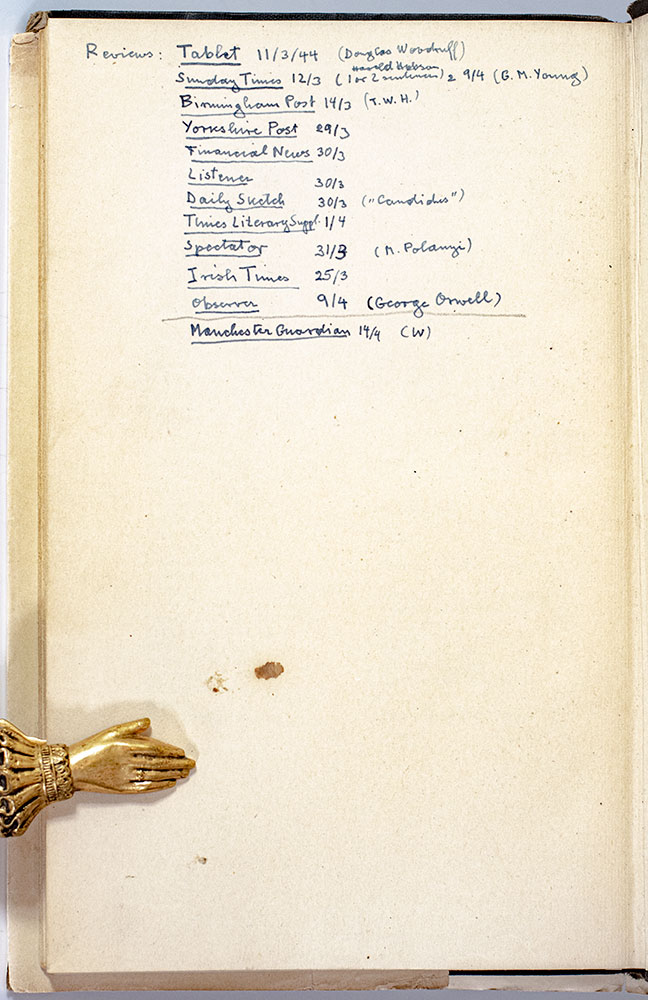 Reviews: Tablet 11/3/44 (Douglas Woodruff)
Harold Hobson
Sunday Times 12/3 (1 or 2 sentences) & 9/4 (G.M. Young)
Birmingham Post 14/3 (T.W.H.)
Yorkshire Post 29/3
Financial News 30/3
Listener 30/3
Daily Sketch 30/3 ("Candidus")
Times Literary Suppl. 1/4
Spectator 31/3 (M. Polanyi)
Irish Times 25/3
Observer 9/4 (George Orwell)
Manchester Guardian 14/4 (W)